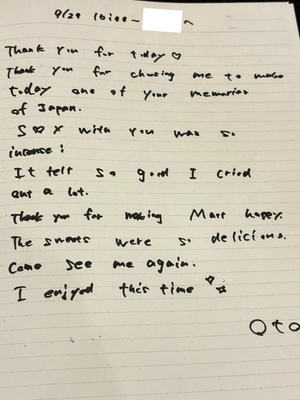 9/29 16:00~
Thank you for today ♡
Thank you for chosing me to make
today one of your memories
of Japan.
S♡x with you was so
intense!
It felt so good I cried
out a lot.
Thank you for making Mars happy.
The sweets were so delicious.
Come see me again.
I enjoyed this time ☆☆